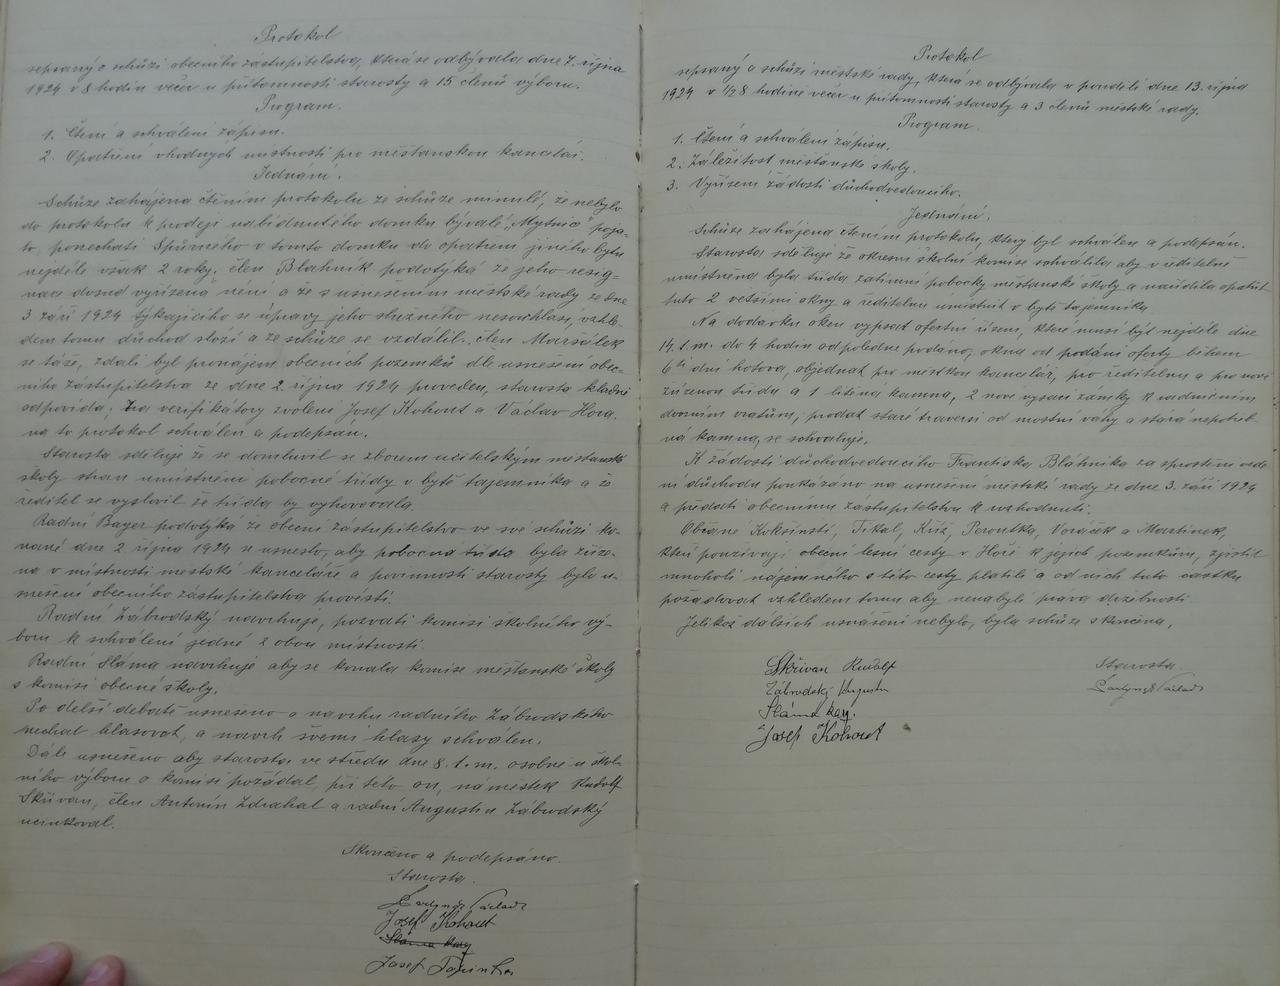 Protokol
sepsaný o schůzi obecního zástupitelstva, která se odbývala dne 7. října
1924 v 8 hodin večer u přítomnosti starosty a 15 členů výboru.
Program.
1. Čtení a schválení zápisu.
2. Opatření vhodných místností pro měšťanskou kancelář.
Jednání.
Schůze zahájena čtením protokolu ze schůze minulé, že nebylo
do protokolu k prodeji nabídnutého domku bývalé „Mýtnice" poja-
to, ponechati v tomto domku do opatření jiného bytu
nejdéle však 2 roky, člen Blahník podotýká že jeho resig-
nace dosud vyřízena není a že s usnešením městské rady ze dne
3 září 1924 týkajícího se úpravy jeho služného nesouhlasí, vzhle-
dem tomu důchod složí a ze schůze se vzdálil. člen Maršálek
se táže, zdali byl pronájem obecních pozemků dle usnešení obec-
ního zástupitelstva ze dne 2. října 1924 proveden, starosta kladně
odpovídá. Za verifikátory zvoleni Josef Kohout a Václav Hora.
na to protokol schválen a podepsán.
Starosta sděluje že se domluvil se zborem učitelským měšťanské
školy stran umístnění pobočné třídy v bytě tajemníka a že
ředitel se vyslovil že třída by vyhovovala.
Radní Bayer podotýká že obecní zástupitelstvo ve své schůzi ko-
nané dne 2 října 1924 se usneslo, aby pobočná třída byla zříze-
na v místnosti městské kanceláře a povinností starosty bylo u-
snešení obecního zástupitelstva provésti.
Radní Zábrodský navrhuje, pozvati komisi školního vý-
boru k schválení jedné z obou místností.
Radní Sláma navrhuje aby se konala komise měšťanské školy
s komisí obecné školy.
Po delší debatě usneseno o návrhu radního Zábrodského
nechat hlasovat, a návrh všemi hlasy schválen.
Dále usnešeno aby starosta ve středu dne 8. t. m. osobně u škol-
ního výboru o komisi požádal, při této on, náměstek Rudolf
Skřivan, člen Antonín Zdrahal a radní Augustin Zábrodský
účinkoval.
Skončeno a podepsáno.
Starosta.
Václav
Josef Kohout
Sláma
Josef
Protokol
sepsaný o schůzi městské rady, která se odbývala v pondělí dne 13. října
1924 v 1/2 8 hodině večer u přítomnosti starosty a 3 členů městské rady.
Program.
1. Čtení a schválení zápisu.
2. Záležitost měšťanské školy.
3. Vyřízení žádosti důchodvedoucího.
Jednání.
Schůze zahájena čtením protokolu, který byl schválen a podepsán.
Starosta sděluje že okresní školní komise schválila aby v ředitelně
umístněna byla třída zatímní pobočky měšťanské školy a nařídila opatřit
tuto 2 většími okny a ředitelnu umístnit v bytě tajemníka.
Na dodávku oken vypsat ofertní řízení, které musí být nejdéle dne
14. t. m. do 4 hodin odpoledne podáno, okna od podání oferty během
6 ti dní hotova, objednat pro městkou kancelář, pro ředitelnu a pro nově
zřízenou třídu a 1 litěná kamna, 2 nové vysací zámky k radničním
dvorním vratům, prodat staré traversi od mostní váhy a stará nepotřeb-
ná kamna, se schvaluje.
K žádosti důchodvedoucího Františka Bláhníka za sproštění vede-
ní důchodu poukázáno na usnešení městské rady ze dne 3. září 1924
a předati obecnímu zástupitelstvu k rozhodnutí.
Občané Kokšínští, Tikal, Kříž, Peroutka, Voráček a Martínek,
kteří používají obecní lesní cesty v Hoře k jejich pozemkům, zjistit
mnoholi nájemného z této cesty platili a od nich tuto částku
požadovat vzhledem tomu aby nenabyli práva držebnosti.
Jelikož dalších usnášení nebylo, byla schůze skončena.
Skřivan Rudolf
Zábrodský Augustin
Sláma
Josef Kohout
Starosta.
Václav